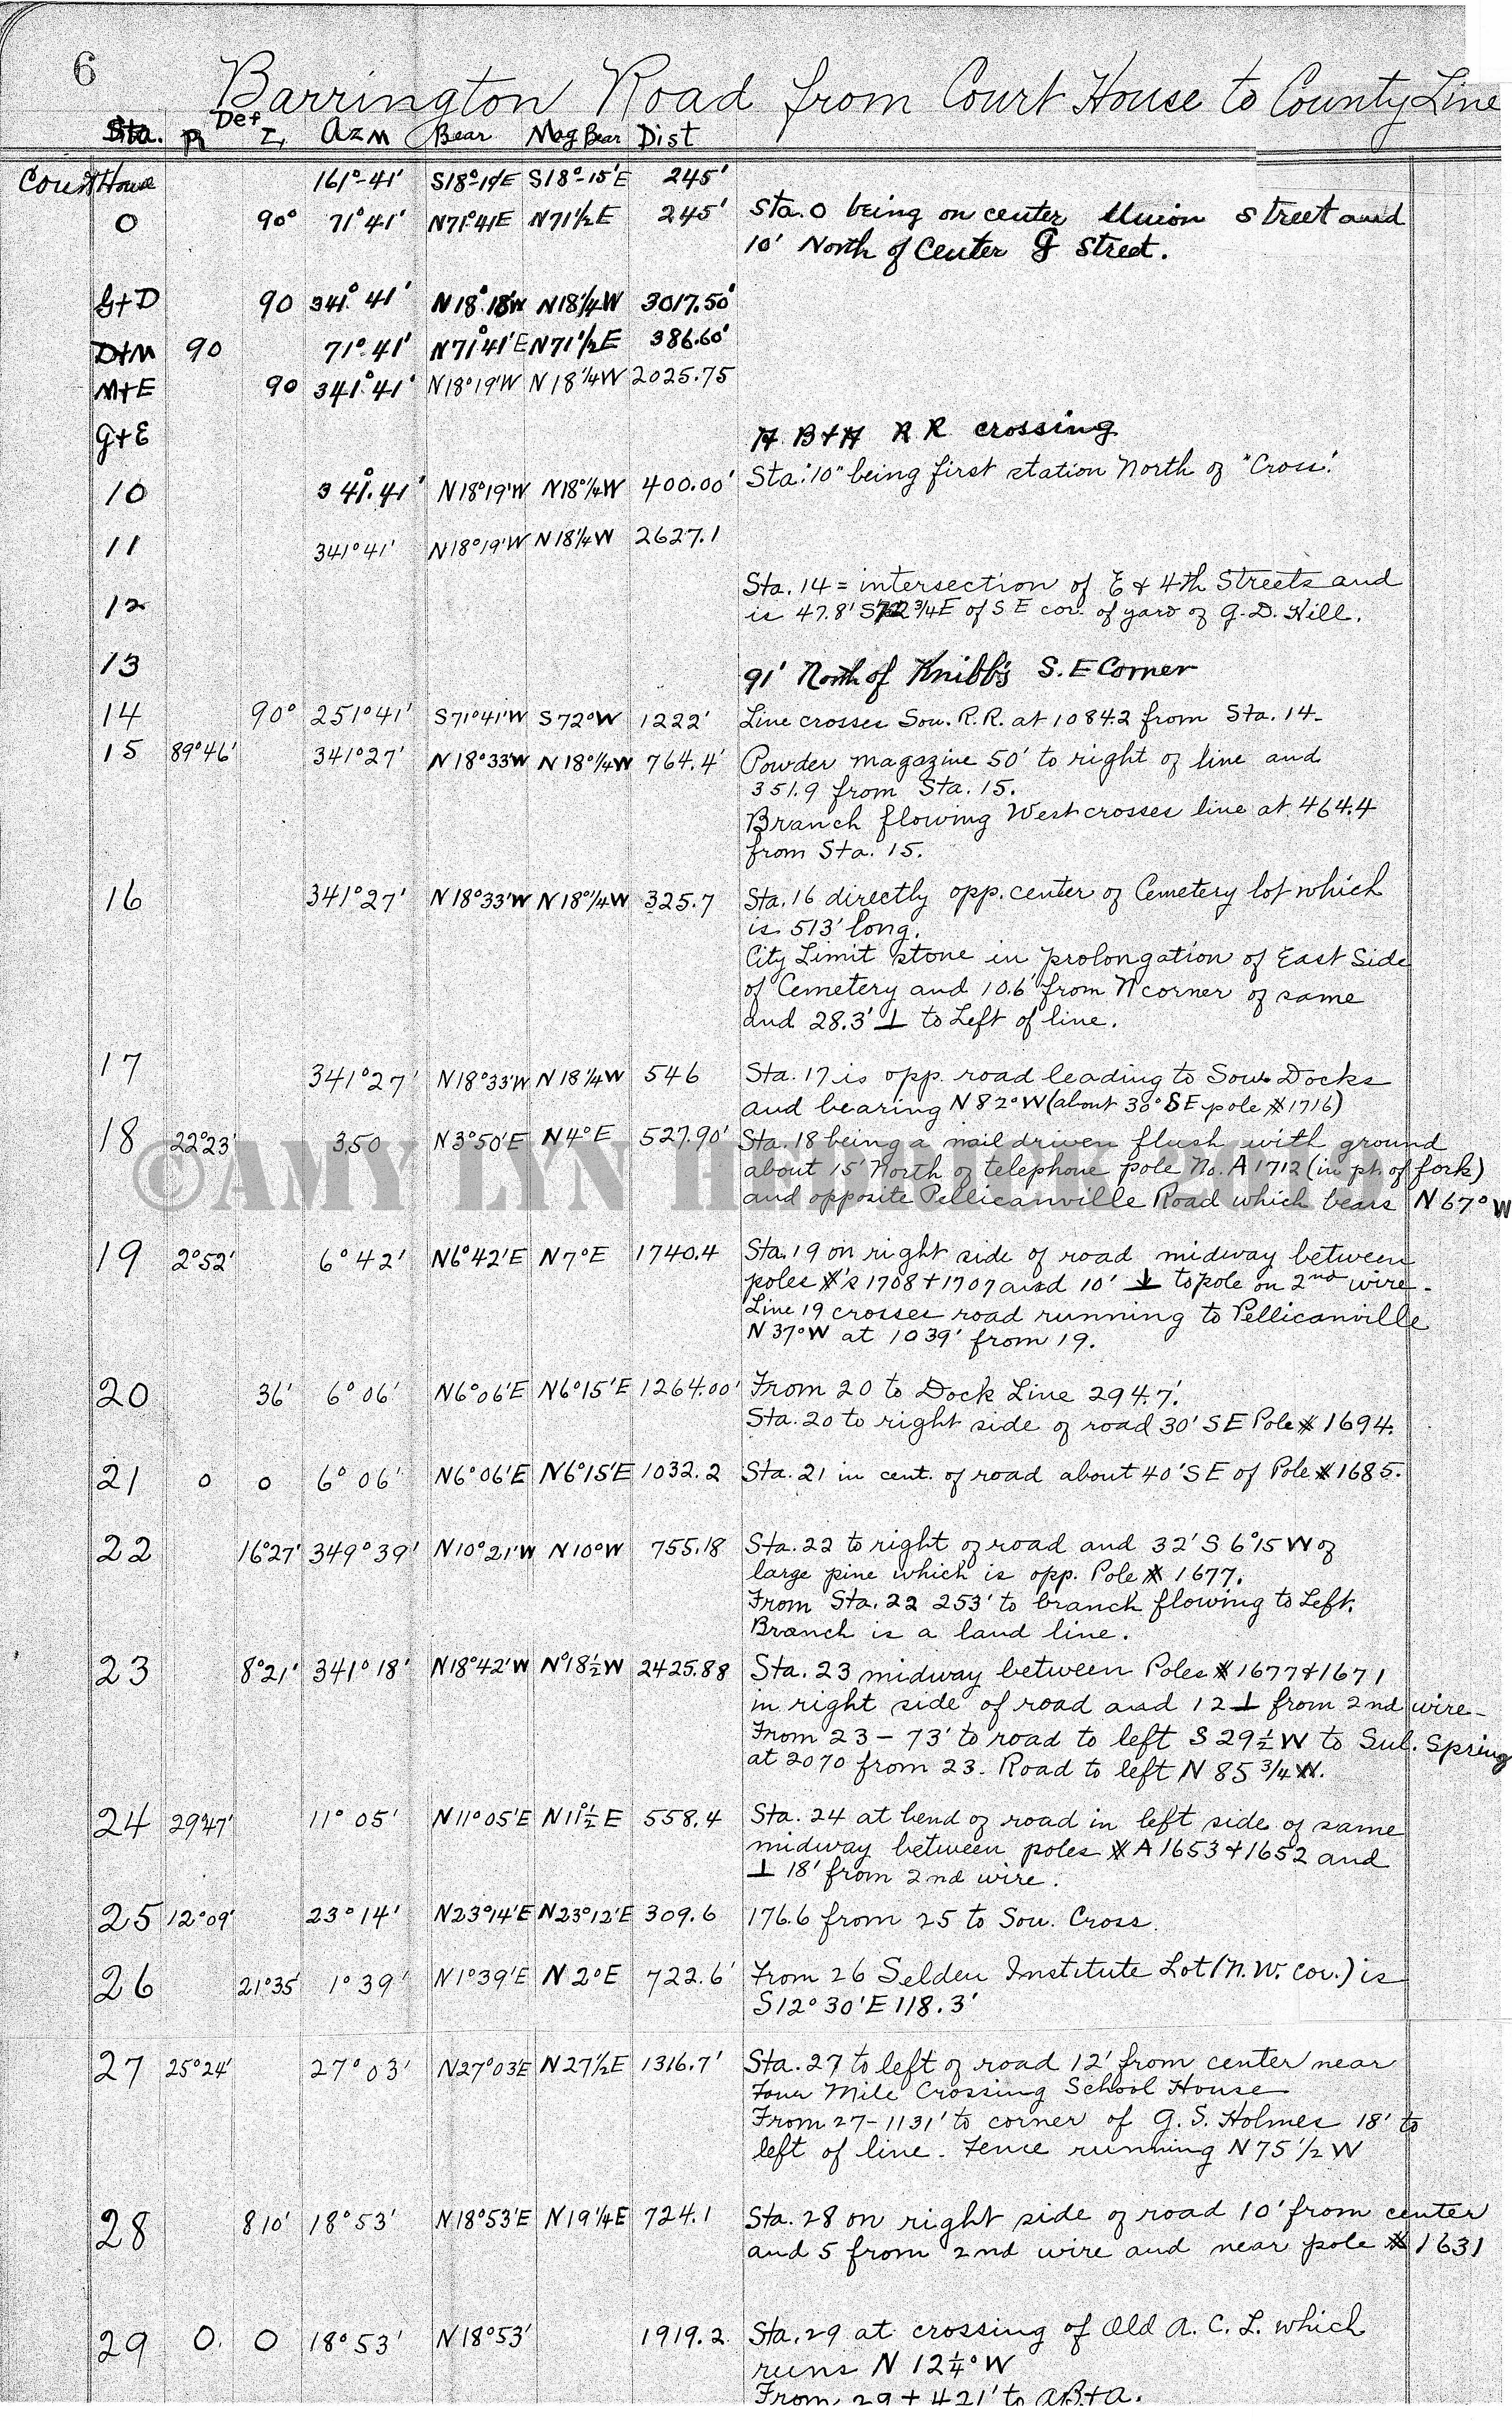 6
Barrington Road from Court House to County Line
Sta. R Def L Azm Bear Mag Bear Dist
Court House 161°-41' S18°-19'E S18°-15'E 245'
0 90° 71°41' N71°41E N71½E 245' Sta. 0 being on center Union Street and
10' North of Center G Street.
G+D 90 341° 41' N18°18'W N18¼W 3017.50'
D+M 90 71° 41' N71°41'E N71½E 386.60'
M+E 90 341° 41' N18°19'W N18¼W 2025.75
G+E A B + A R R crossing
10 341°.41' N18°19'W N18°¼W 400.00' Sta. "10" being first station North of "Cross".
11 341°41' N18°19'W N18¼W 2627.1
12 Sta. 14 = intersection of E & 4th Streets and
is 47.8' S72¾E of S.E cor. of yard of G. D. Hill.
13 91' North of Knibb's S.E Corner
14 90° 251°41' S71°41'W S72°W 1222' Line crosses Sou. R.R. at 1084.2 from Sta. 14-
15 89°46' 341°27' N18°33'W N18°¼W 764.4' Powder magazine 50' to right of line and
351.9 from Sta. 15.
Branch flowing West crosses line at 464.4
from Sta. 15.
16 341°27' N18°33'W N18°¼W 325.7 Sta. 16 directly opp. center of Cemetery lot which
is 513' long.
City Limit stone in prolongation of East Side
of Cemetery and 10.6' from N corner of same
and 28.3' ⊥ to Left of line.
17 341°27' N18°33'W N18¼W 546 Sta. 17 is opp. road leading to Sou. Docks
and bearing N82°W (about 30° SE pole # 1716)
18 22°23' 3.50 N3°50'E N4°E 527.90' Sta. 18 being a nail driven flush with ground
about 15' North of telephone pole No. A1712 (in pt. of fork)
and opposite Pellicanville Road which bears N67°W
19 2°52' 6°42' N6°42'E N7°E 1740.4 Sta. 19 on right side of road midway between
poles #'s 1708 + 1707 and 10' ⊥ to pole on 2nd wire-
Line 19 crosses road running to Pellicanville
N37°W at 1039' from 19.
20 36' 6°06' N6°06'E N6°15'E 1264.00' From 20 to Dock Line 294.7'.
Sta. 20 to right side of road 30' SE Pole # 1694.
21 0 0 6°06' N6°06'E N6°15'E 1032.2 Sta. 21 in cent. of road about 40' SE of Pole #1685.
22 16°27' 349°39' N10°21'W N10°W 755.18 Sta. 22 to right of road and 32' S 6°15 W of
large pine which is opp. Pole # 1677.
From Sta. 22 253' to branch flowing to Left.
Branch is a land line.
23 8°21' 341°18' N18°42'W N°18½W 2425.88 Sta. 23 midway between Poles # 1677 & 1671
in right side of road and 12 ⊥ from 2nd wire-
From 23 - 73' to road to left S 29½ W to Sul. Spring
at 2070 from 23. Road to left N 85¾ W.
24 29°47' 11° 05' N11°05'E N11½°E 558.4 Sta. 24 at bend of road in left side of same
midway between poles # A1653 & 1652 and
⊥ 18' from 2nd wire.
25 12°09' 23°14' N23°14'E N23°12'E 309.6 176.6 from 25 to Sou. Cross.
26 21°35' 1°39' N1°39'E N2°E 722.6' From 26 Selden Institute Lot (N.W. cor.) is
S12°30'E 118.3'
27 25°24' 27°03' N27°03E N27½E 1316.7' Sta. 27 to left of road 12' from center near
Four Mile Crossing School House
From 27 - 1131' to corner of G. S. Holmes 18' to
left of line. Fence running N75½ W
28 810' 18°53' N18°53'E N19¼E 724.1 Sta. 28 on right side of road 10' from center
and 5 from 2nd wire and near pole # 1631
29 0. 0 18°53' N18°53' 1919.2 Sta. 29 at crossing of Old A. C. L. which
runs N 12¼° W
From 29 + 421' to AB+A.
©AMY LYN HEDRICK 2019